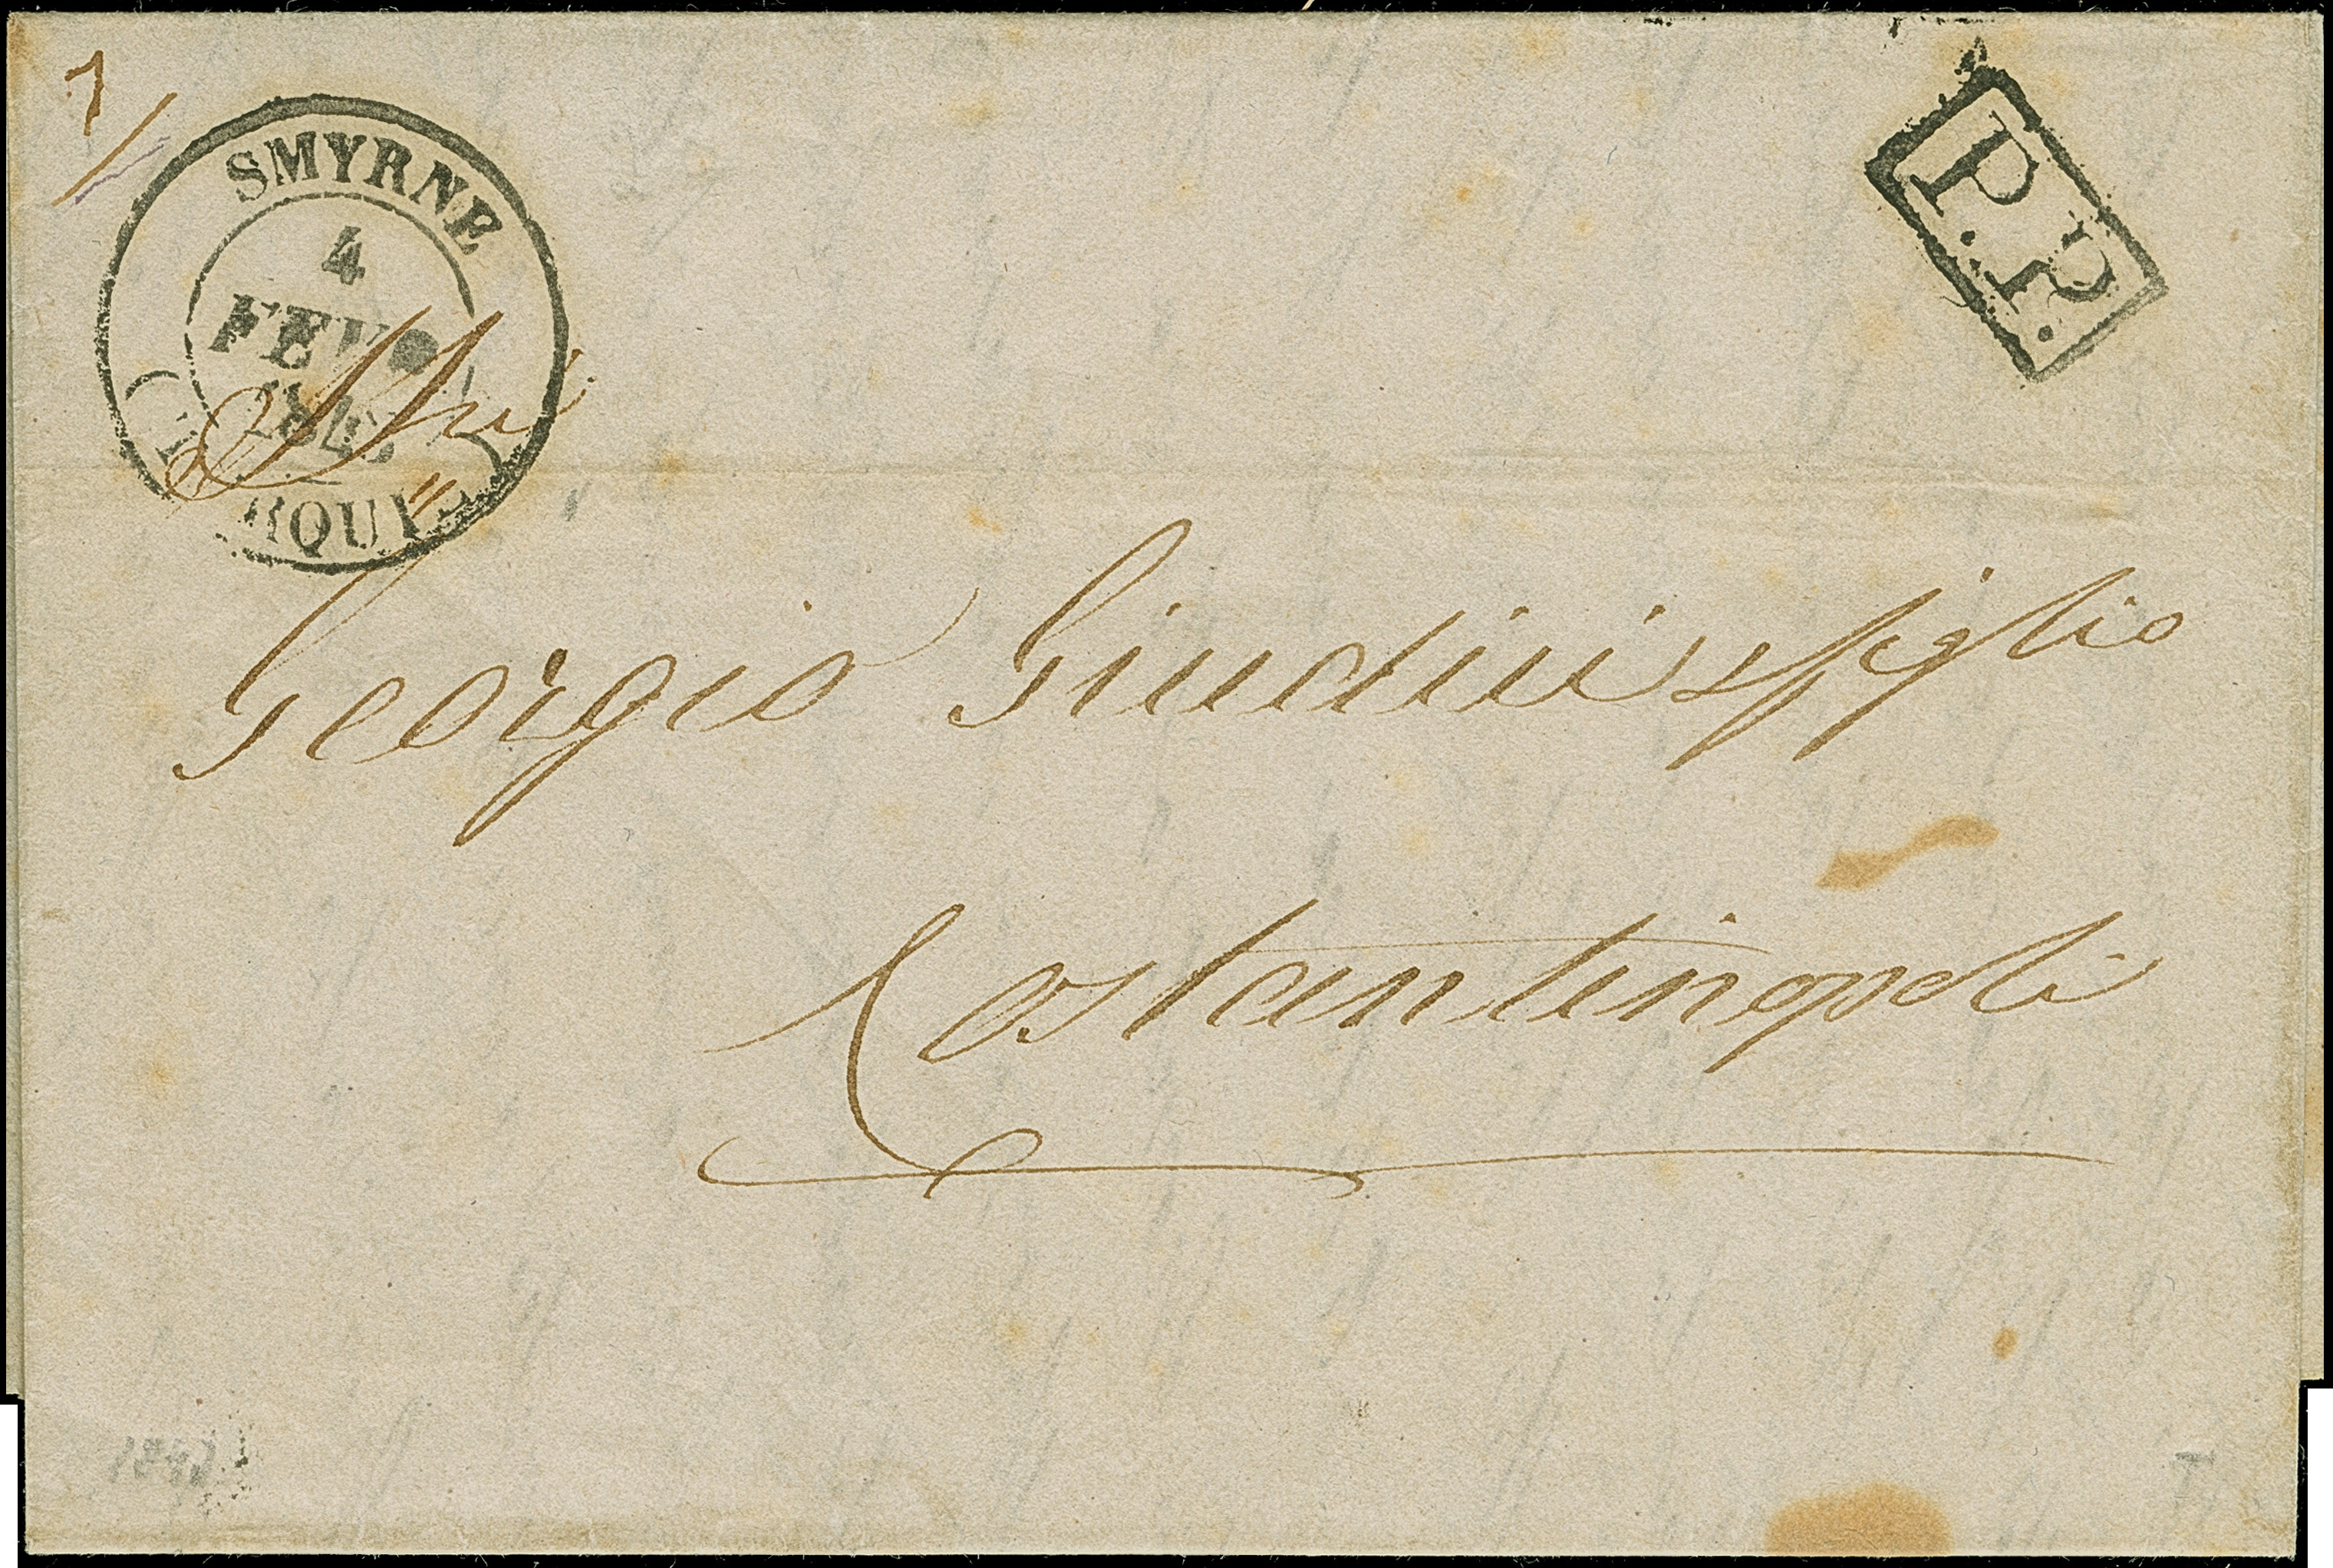 1/
SMYRNE
4
FEVR
184
P.P.
Georgio Giudici & figlio
Costantinopoli